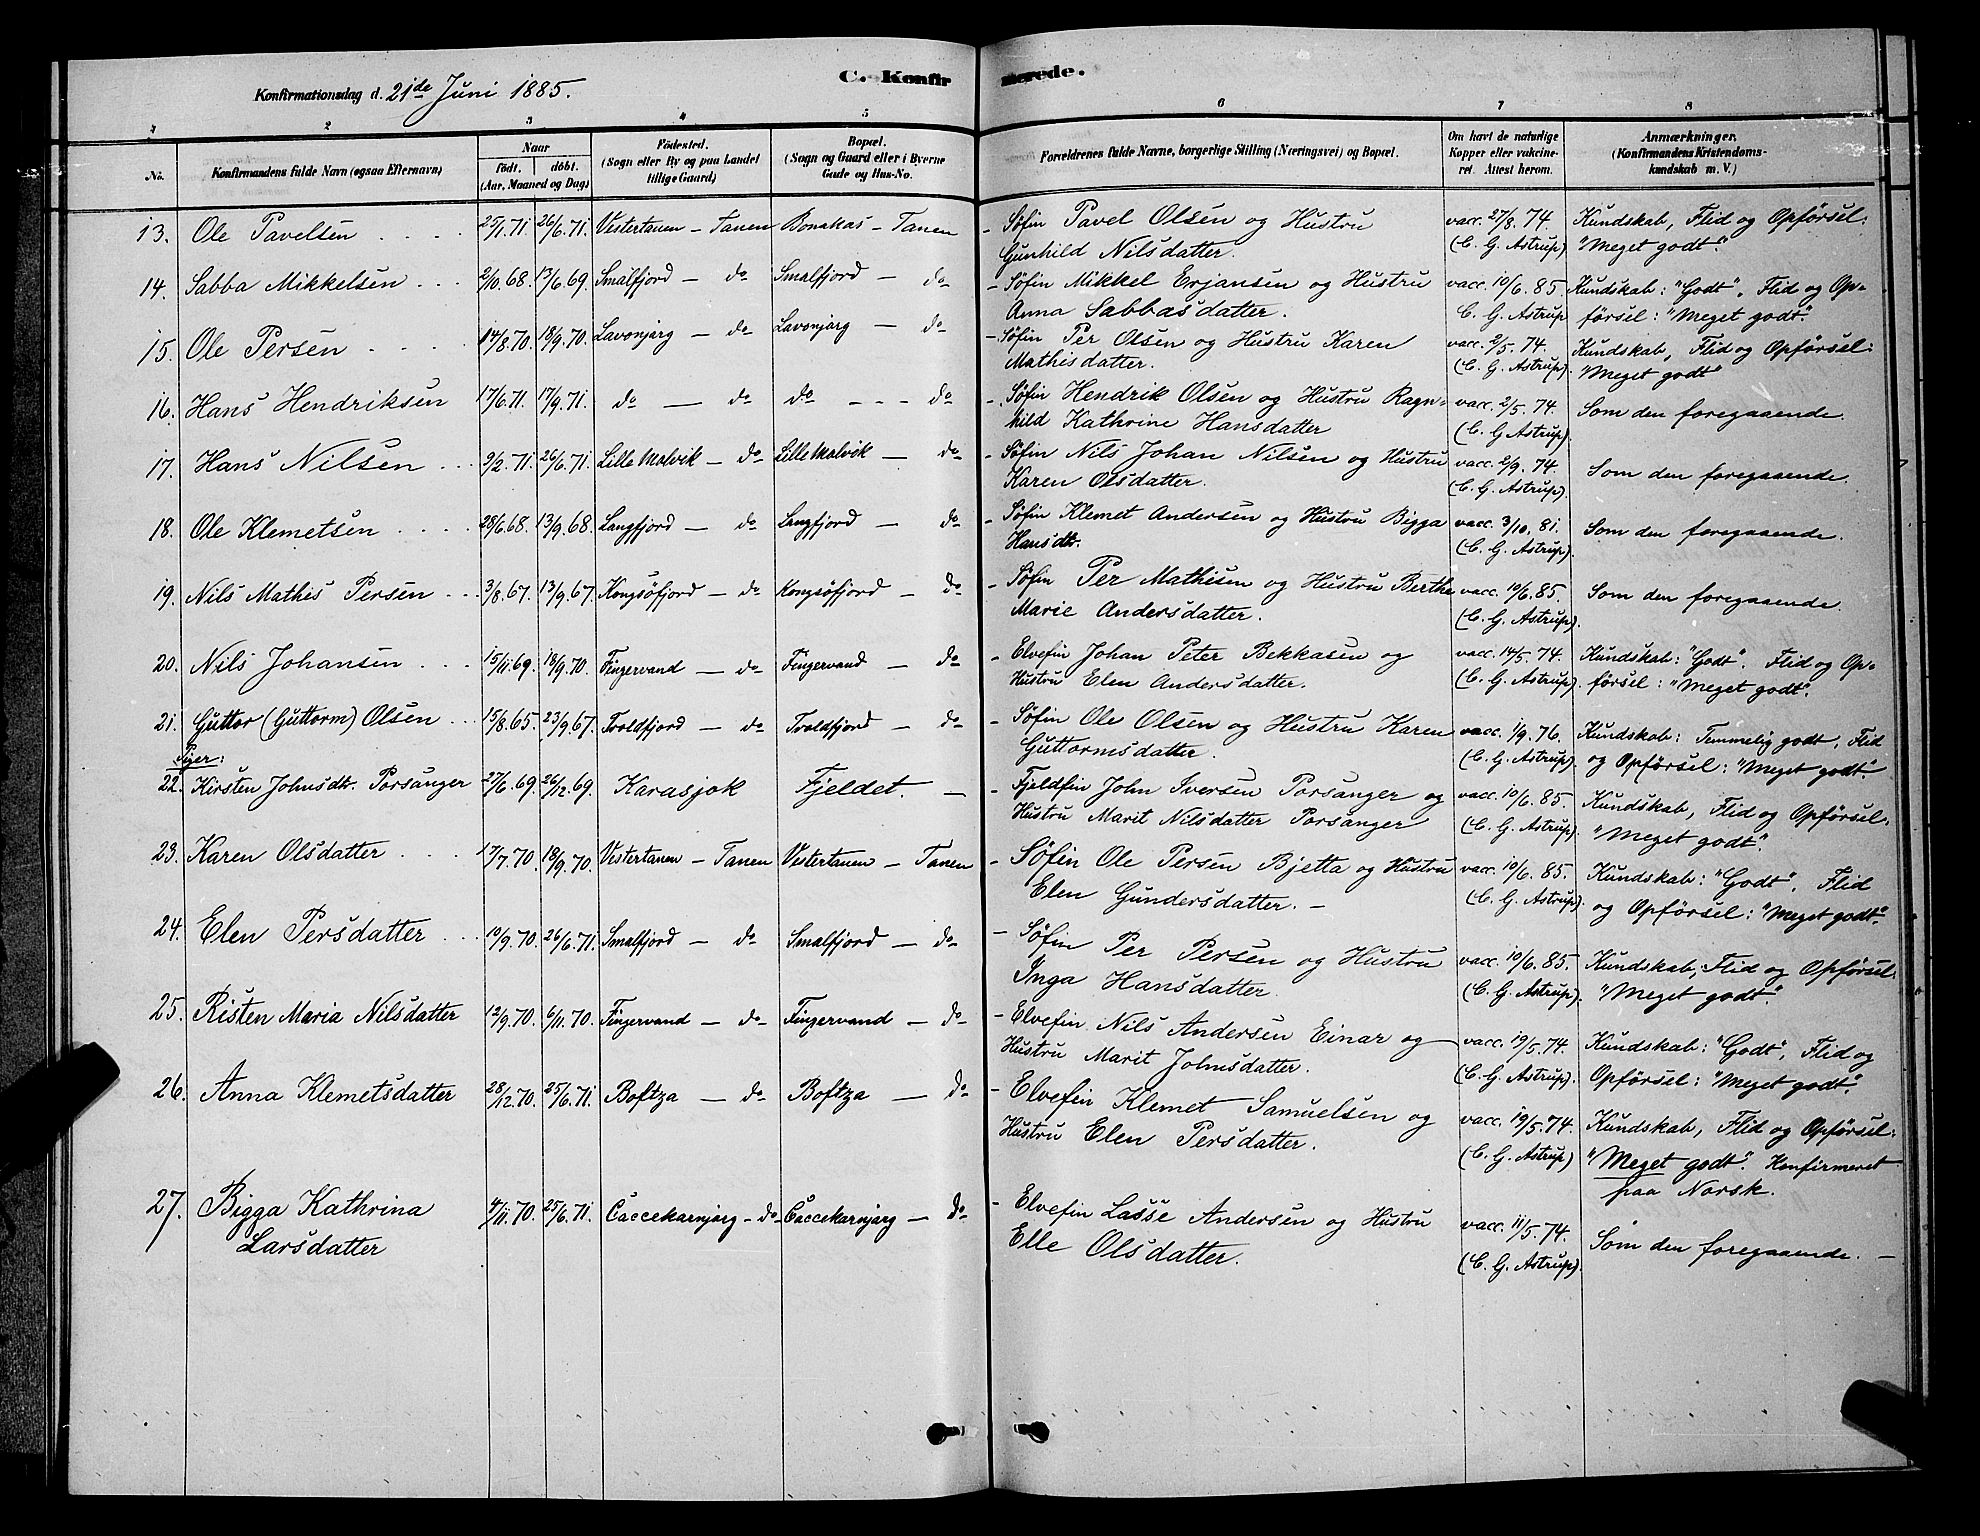 C. Konfirmerede.
Konfirmationsdag d. 21de Juni 1885.
1 2 3 4 5 6 7 8
No.
Konfirmandens fulde Navn (ogsaa Efternavn)
Naar
født. døbt.
(Aar, Maaned og Dag)
Fødested.
(Sogn eller By og paa Landet
tillige Gaard)
Bopæl.
(Sogn og Gaard eller i Byerne
Gade og Hus-No.
Forældrenes fulde Navne, borgerlige Stilling (Næringsvei) og Bopæl.
Om havt de naturlige
Kopper eller vakcine-
ret. Attest herom.
Anmærkninger.
(Konfirmandens Kristendoms-
kundskab m. V.)
13. Ole Pavelsen 25/1.71. 26/6.71. Vestertanen – Tanen Bonakas – Tanen – Søfin Pavel Olsen og Hustru vacc. 27/8.74. Kundskab, Flid og Opførsel:
Gunhild Nilsdatter. (C. G. Astrup) "Meget godt".
14. Sabba Mikkelsen 2/10.68. 13/6.69. Smalfjord – do Smalfjord – do – Søfin Mikkel Erjansen og Hustru vacc. 10/6.85 Kundskab: "Godt". Flid og Op-
Anna Sabbasdatter. C. G. Astrup førsel: "Meget godt".
15. Ole Persen 14/8.70. 18/9.70. Lavonjarg – do Lavonjarg – do – Søfin Per Olsen og Hustru Karen vacc. 2/5.74. Kundskab, Flid og Opførsel:
Mathisdatter. (C. G. Astrup). "Meget godt"
16. Hans Hendriksen 17/6.71. 17/9.71. do – do do – – – do – Søfin Hendrik Olsen og Hustru Ragn-
hild Kathrine Hansdatter vacc. 2/5.74. (C. G. Astrup). Som den foregaaende.
17. Hans Nilsen 9/2.71. 26/6.71. Lille Molvik – do Lille Molvik – do – Søfin Nils Johan Nilsen og Hustru vacc. 2/9.74. Som den foregaaende.
Karen Olsdatter. (C. G. Astrup).
18. Ole Klemetsen 28/6.68. 13/9.68. Langfjord – do Langfjord – do – Søfin Klemet Andersen og Hustru Bigga vacc. 3/10.81. Som den foregaaende.
Hansdt. (C. G. Astrup).
19. Nils Mathis Persen 3/8.67. 13/9.67. Kongsøfjord – do Kongsøfjord – do – Søfin Per Mathisen og Hustru Berthe vacc. 10/6.85. Som den foregaaende.
Marie Andersdatter. (C. G. Astrup).
20. Nils Johansen 15/11.69. 18/9.70. Fingervand – do Fingervand – do – Elvefin Johan Peter Bekkasen og vacc. 14/5.74. Kundskab: "Godt". Flid og Op-
Hustru Elen Andersdatter. (C. G. Astrup). førsel: "Meget godt".
21. Guttor (Guttorm) Olsen 15/8.65. 23/9.67. Troldfjord – do Troldfjord – do – Søfin Ole Olsen og Hustru Karen vacc. 1/9.76. Kundskab: Temmelig godt, Flid
Guttormsdatter. (C. G. Astrup). og Opførsel: "Meget godt"
Piger:
22. Kirsten Johnsdt. Porsanger 27/6.69. 26/12.69. Karasjok Fjeldet. – – Fjeldfin John Iversen Porsanger og vacc. 10/6.85. Kundskab, Flid og Opførsel:
Hustru Marit Nilsdatter Porsanger (C. G. Astrup). "Meget godt".
23. Karen Olsdatter 17/7.70. 18/9.70. Vestertanen – Tanen Vestertanen – Tanen – Søfin Ole Persen Bjetta og Hustru vacc. 10/6.85. Kundskab: "Godt". Flid
Elen Gundersdatter. – (C. G. Astrup). og Opførsel: "Meget godt".
24. Elen Persdatter 10/9.70. 26/6.71. Smalfjord – do Smalfjord – do – Søfin Per Persen og Hustru vacc. 10/6.85. Kundskab, Flid og Opførsel:
Inga Hansdatter. (C. G. Astrup). "Meget godt".
25. Risten Maria Nilsdatter 12/9.70. 6/11.70. Fingervand – do Fingervand – do – Elvefin Nils Andersen Einar og vacc. 19/5.74. Kundskab: "Godt", Flid og
Hustru Marit Johnsdatter. (C. G. Astrup) Opførsel: "Meget godt".
26. Anna Klemetsdatter 28/12.70. 25/6.71. Boftza – do Boftza – do – Elvefin Klemet Samuelsen og vacc. 19/5.74. Kundskab, Flid og Opførsel:
Hustru Elen Persdatter. (C. G. Astrup) "Meget godt". Konfirmeret
paa Norsk.
27. Bigga Kathrina 4/11.70. 25/6.71. Caccekarnjarg – do Caccekarnjarg – do – Elvefin Lasse Andersen og Hustru vacc. 11/5.74. Som den foregaaende. –
Larsdatter Elle Olsdatter. (C. G. Astrup)